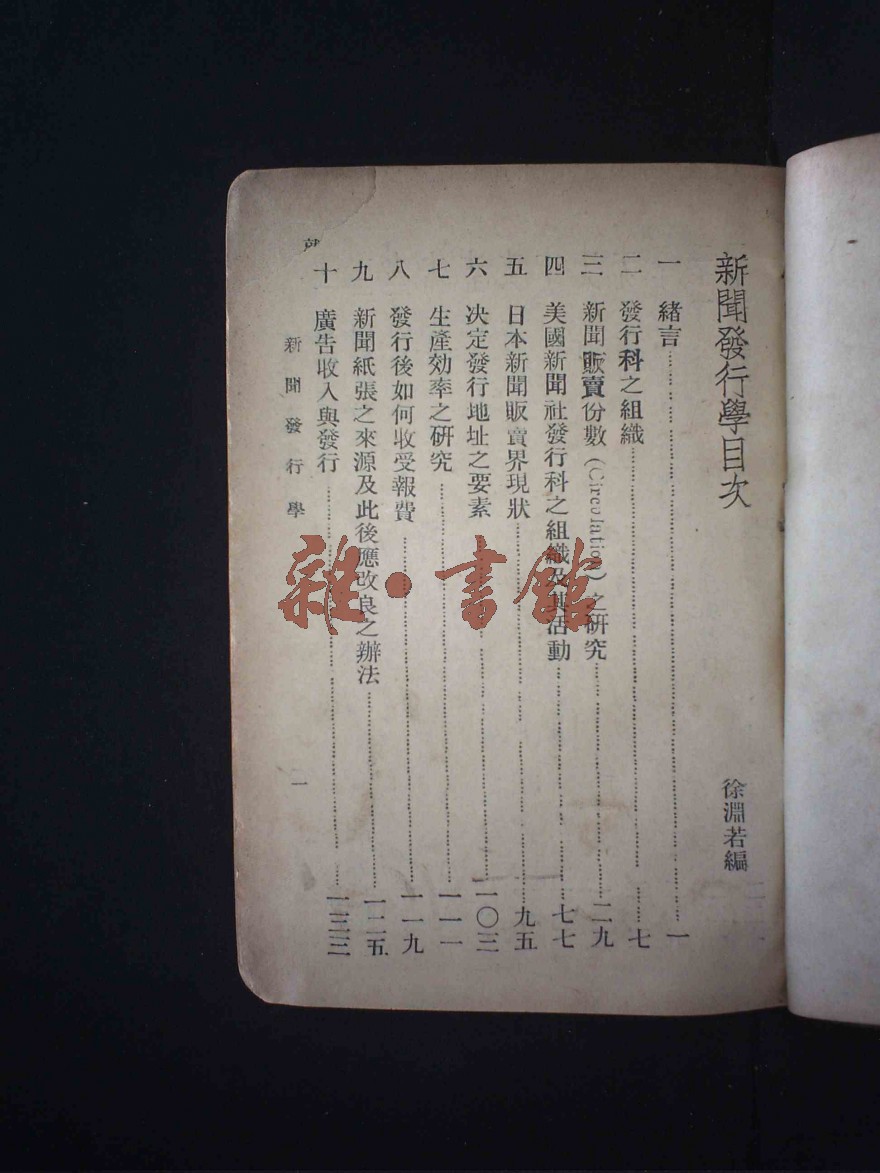 新聞發行學目次
徐淵若編
一 緒言 一
二 發行科之組織 七
三 新聞販賣份數(Circulation)之研究 二九
四 美國新聞社發行科之組織及其活動 七七
五 日本新聞販賣界現狀 九五
六 決定發行地址之要素 一〇三
七 生產効率之研究 一一一
八 發行後如何收受報費 一一九
九 新聞紙張之來源及此後應改良之辦法 一二五
十 廣告收入與發行 一三三
新聞發行學
一
雜·書館